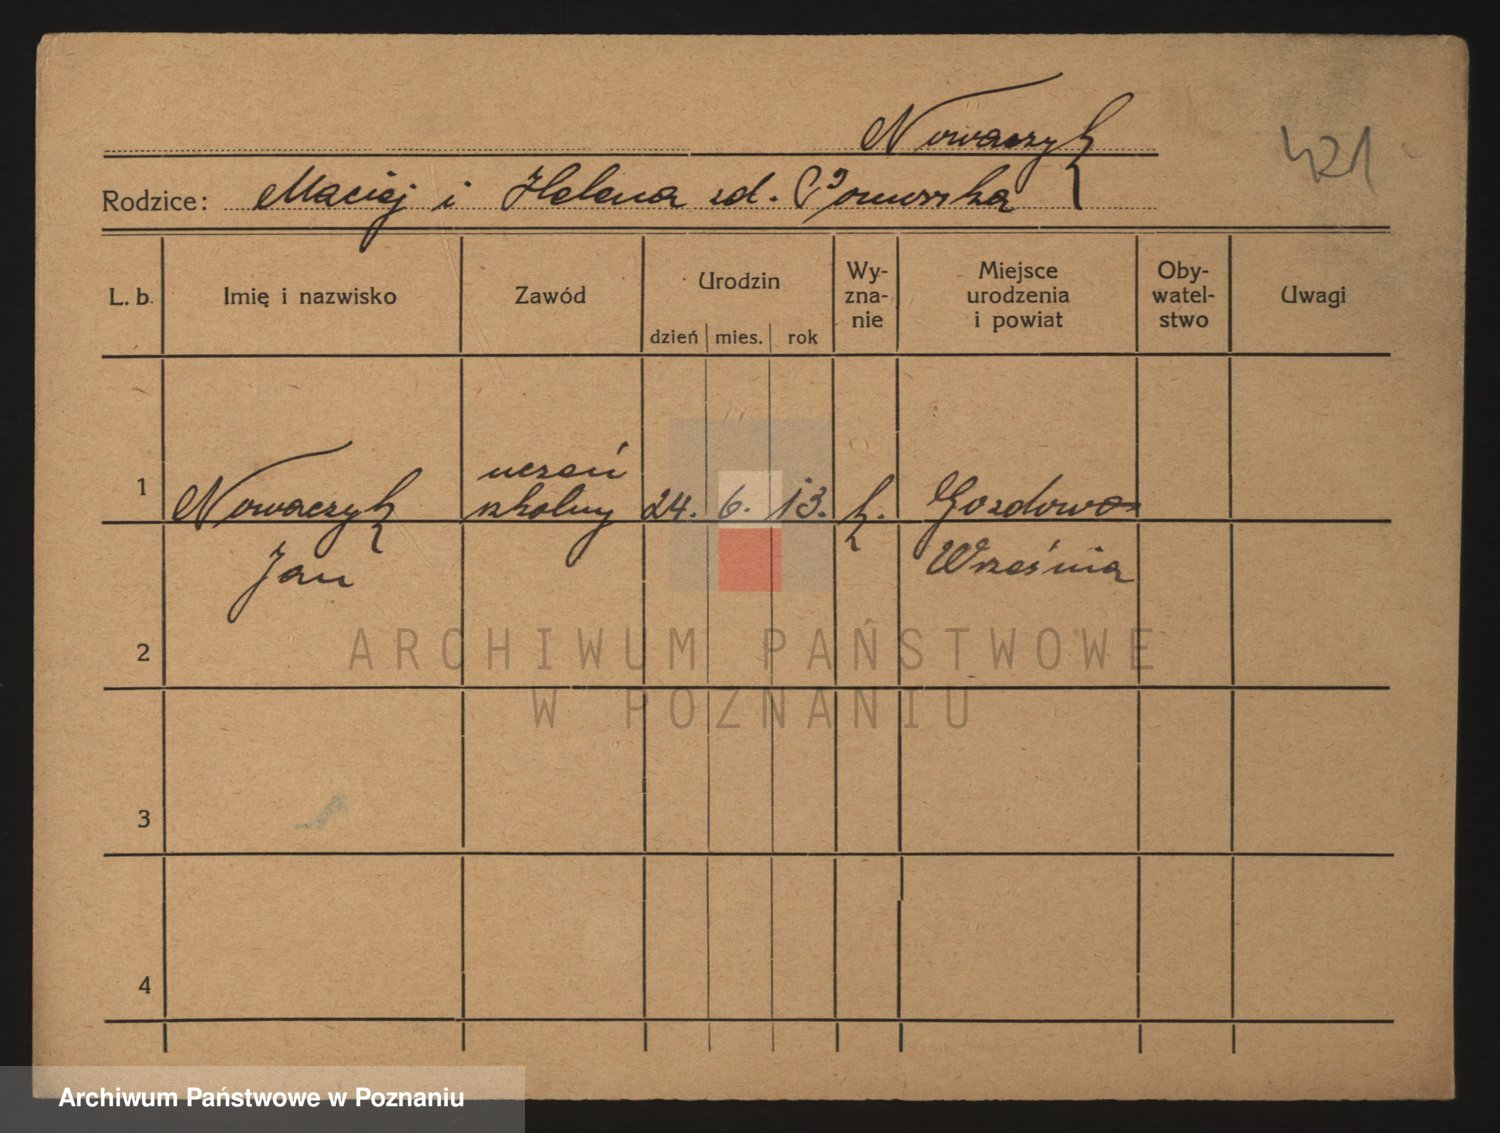 Nowaczyk
421
Rodzice: Maciej i Helena zd. Pomorska
L. b. Imię i nazwisko Zawód Urodzin Wy-zna-nie Miejsce urodzenia i powiat Oby-watel-stwo Uwagi
dzień mies. rok
1 Nowaczyk uczeń szkolny 24. 6. 13. k. Gozdowo
Jan Września
2
3
4
ARCHIWUM PAŃSTWOWE
W POZNANIU
Archiwum Państwowe w Poznaniu